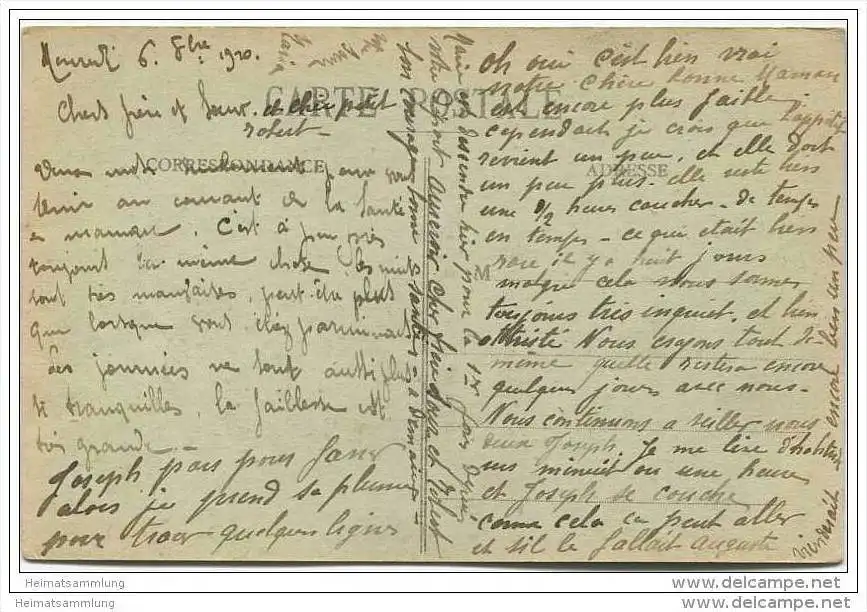 Mercredi 6. 8bre 1920.
CARTE POSTALE
Chers frère et Sœur. et cher petit
robert
CORRESPONDANCE
ADRESSE
M
Deux mots seulement pour vous
tenir au courant de la Santé
maman. C'est à peu près
toujours la même chose, les nuits
sont très mauvaises, peut-être plus
que lorsque vous étiez parmi nous
Les journées ne sont aussi plus
si tranquilles, la faiblesse est
très grande.
Joseph pars pour
alors je prend sa plume
pour tracer quelques lignes
Oh oui c'est bien vrai
notre chère bonne Maman
est encore plus faible
cependant je crois que l'appétit
revient un peu, et elle dort
un peu plus. elle reste bien
une 1/2 heure coucher de temps
en temps - ce qui était bien
rare il y a huit jours
malgré cela nous sommes
toujours très inquiet. et bien
attristé Nous esayons tout de
même quelle restera encore
quelques jours avec nous.
Nous continuons a veiller nous
deux Joseph. Je me lève d'habitude
vers minuit ou une heure
et Joseph se couche
comme cela ça peut aller
et s'il le fallait Auguste
viendrait encore bien un peu
Marie est descendu hier pour la 1re fois
Au revoir cher frère Sœur et robert
bon courage bonne santé - a Demain
Maria